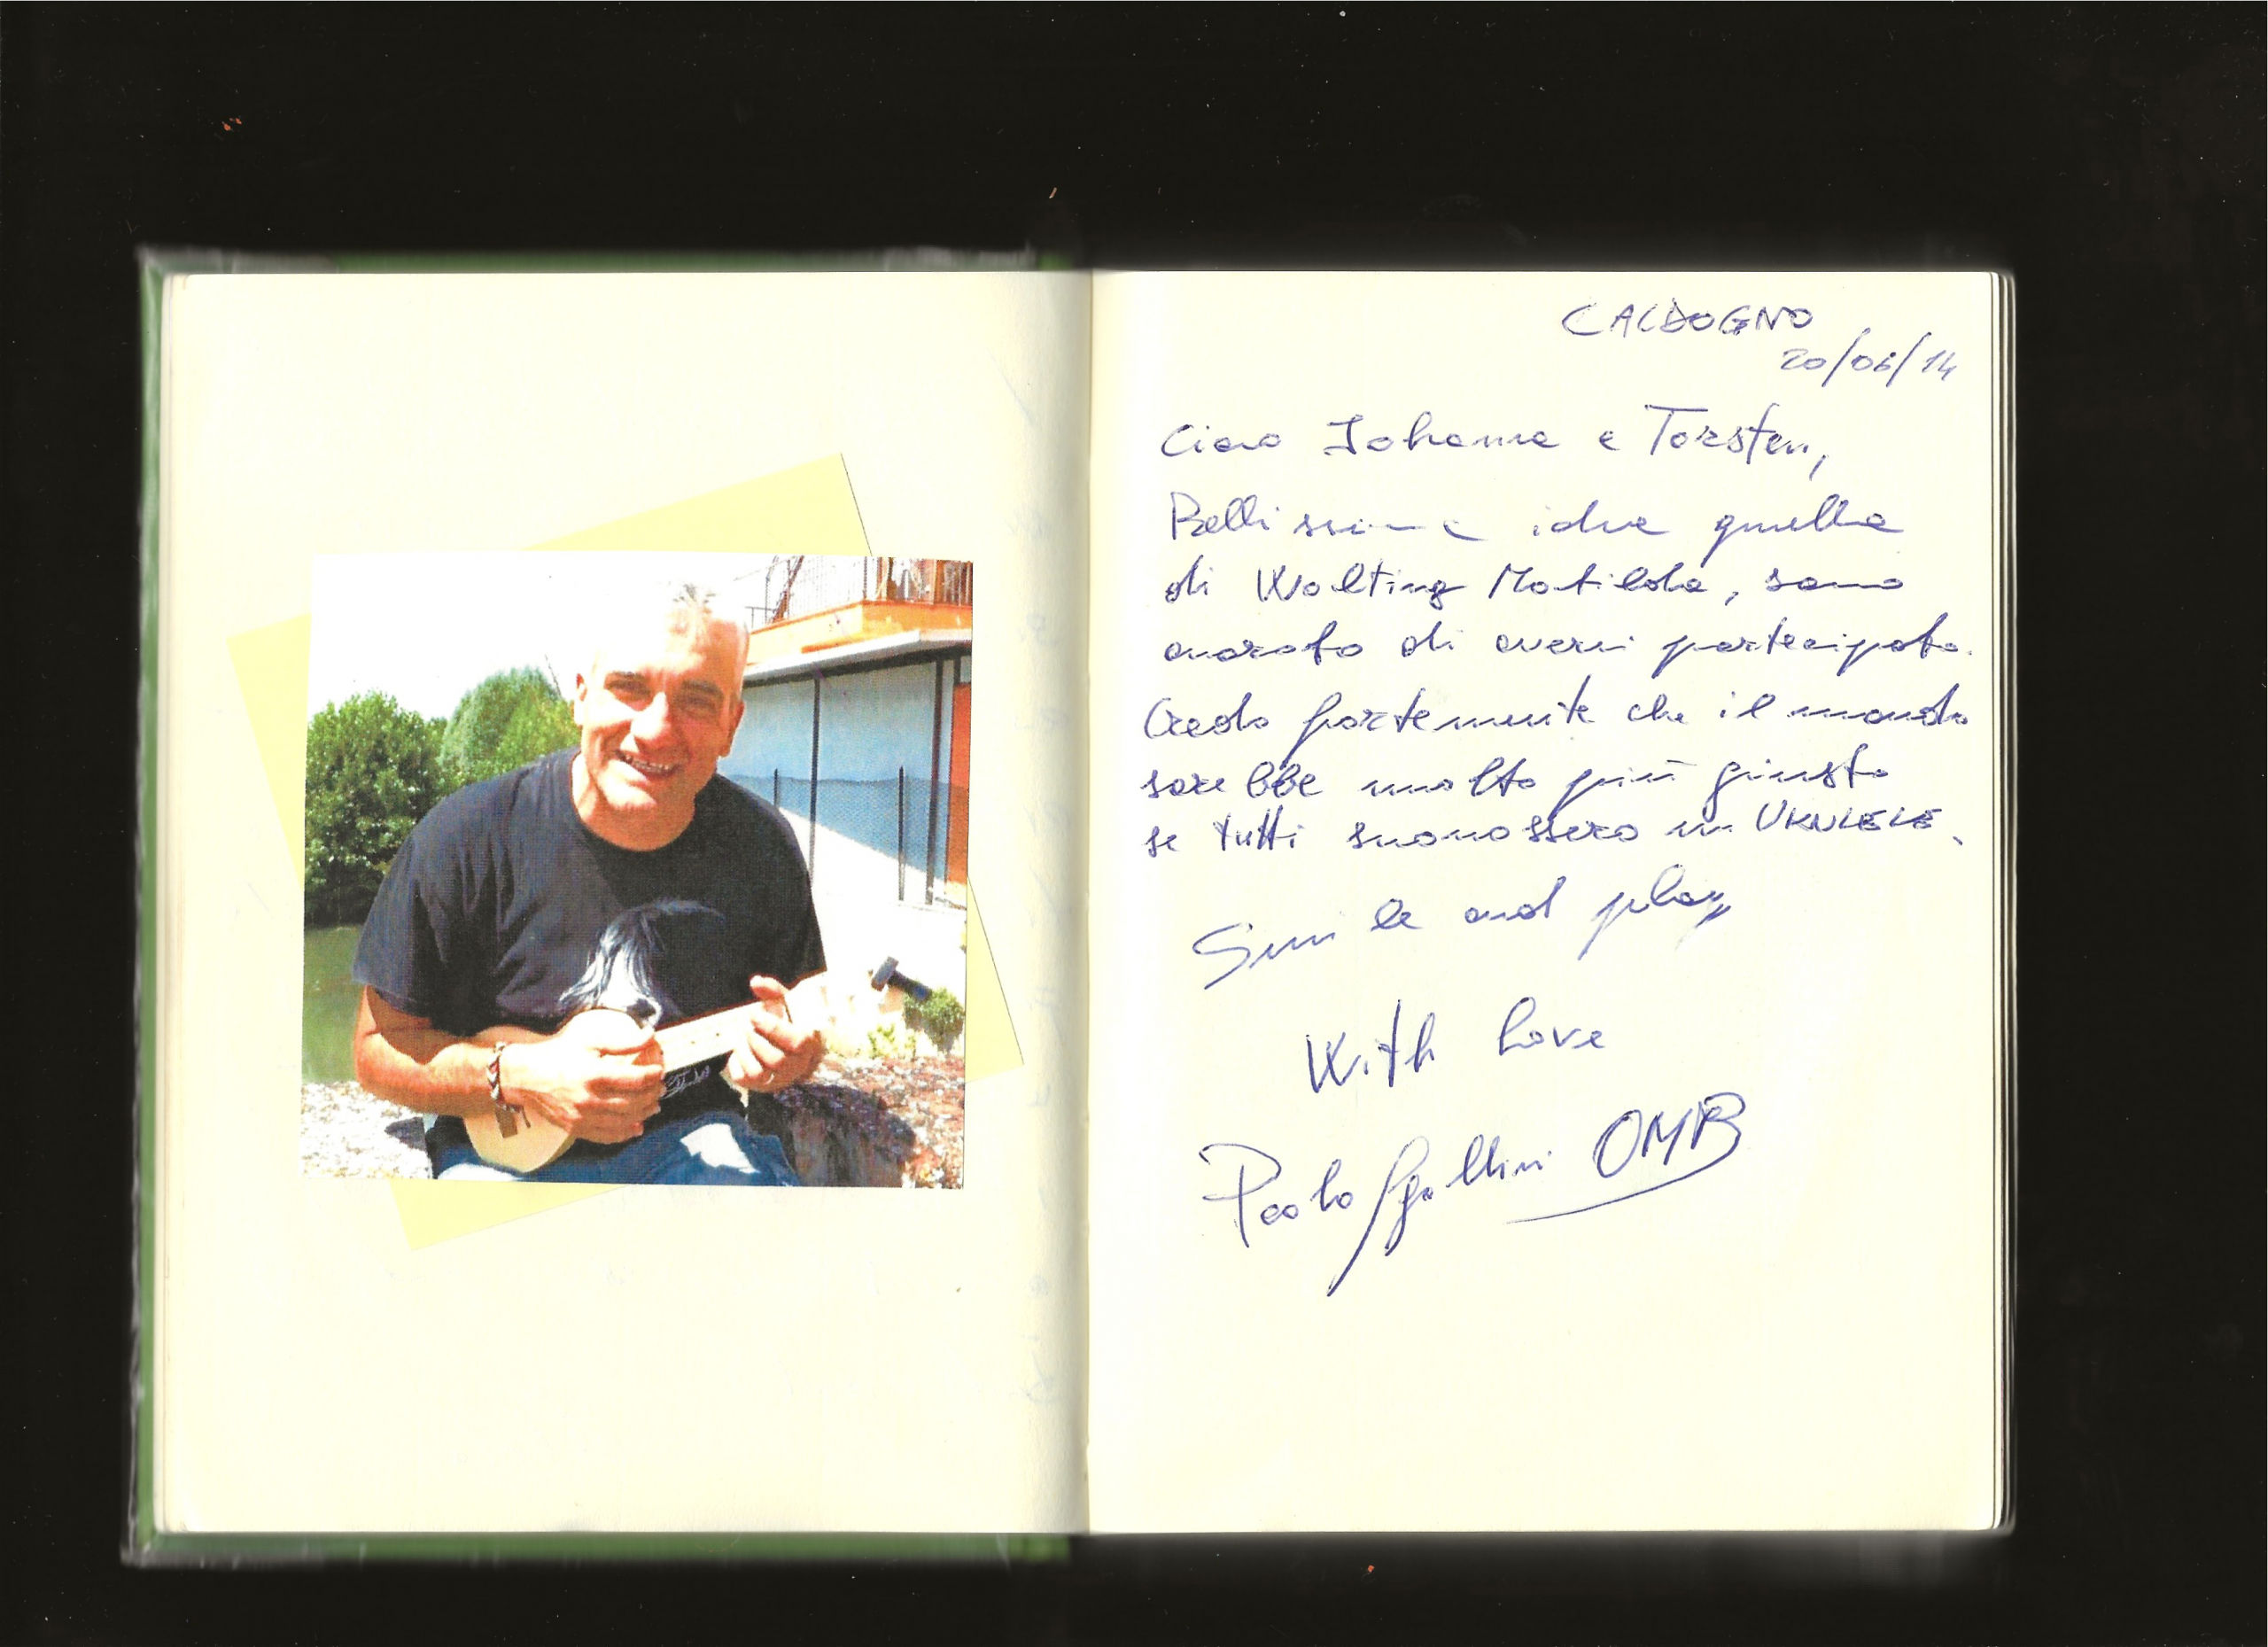 CALDOGNO
20/06/14
Ciao Iohanna e Torsten,
Bellissima idea quella
di Walting Matilda, sono
onorato di averci partecipato.
Credo fortemente che il mondo
sarebbe molto più giusto
se tutti suonassero un UKULELE.
Smile and play
With love
Paolo Sgallini OMB